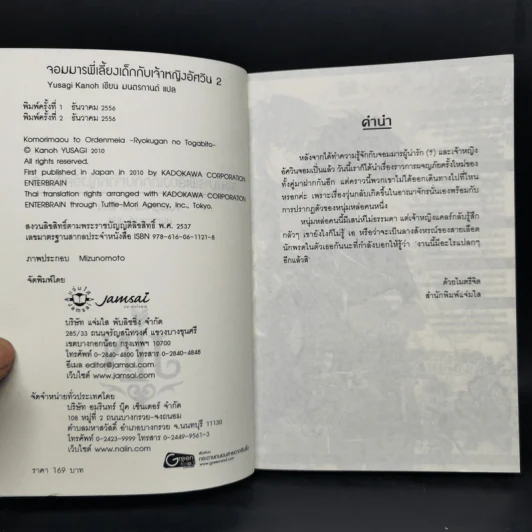 จอมมารพี่เลี้ยงเด็กกับเจ้าหญิงอัศวิน 2
Yusagi Kanoh เขียน มนตรกานต์ แปล
พิมพ์ครั้งที่ 1 ธันวาคม 2556
พิมพ์ครั้งที่ 2 ธันวาคม 2556
Komorimaou to Ordenmeia -Ryokugan no Togabito-
© Kanoh YUSAGI 2010
All rights reserved.
First published in Japan in 2010 by KADOKAWA CORPORATION
ENTERBRAIN
Thai translation rights arranged with KADOKAWA CORPORATION
ENTERBRAIN through Tuttle-Mori Agency, Inc., Tokyo.
สงวนลิขสิทธิ์ตามพระราชบัญญัติลิขสิทธิ์ พ.ศ. 2537
เลขมาตรฐานสากลประจำหนังสือ ISBN 978-616-06-1121-8
ภาพประกอบ Mizunomoto
จัดพิมพ์โดย
jamsai
บริษัท แจ่มใส พับลิชชิ่ง จำกัด
285/33 ถนนจรัญสนิทวงศ์ แขวงบางขุนศรี
เขตบางกอกน้อย กรุงเทพฯ 10700
โทรศัพท์ 0-2840-4800 โทรสาร 0-2840-4848
อีเมล editor@jamsai.com
เว็บไซต์ www.jamsai.com
จัดจำหน่ายทั่วประเทศโดย
บริษัท อมรินทร์ บุ๊ค เซ็นเตอร์ จำกัด
108 หมู่ที่ 2 ถนนบางกรวย-จงถนอม
ตำบลมหาสวัสดิ์ อำเภอบางกรวย จ.นนทบุรี 11130
โทรศัพท์ 0-2423-9999 โทรสาร 0-2449-9561-3
เว็บไซต์ www.naiin.com
ราคา 169 บาท
Green
คำนำ
หลังจากได้ทำความรู้จักกับจอมมารผู้น่ารัก (?) และเจ้าหญิง
อัศวินจอมเปิ่นแล้ว วันนี้เราก็ได้นำเรื่องราวการผจญภัยครั้งใหม่ของ
ทั้งคู่มาฝากกันอีก แต่คราวนี้พวกเขาไม่ได้ออกเดินทางไปที่ไหน
หรอกค่ะ เพราะเรื่องวุ่นกลับเกิดขึ้นในอาณาจักรนั่นเองพร้อมกับ
การปรากฏตัวของหนุ่มหล่อคนหนึ่ง
หนุ่มหล่อคนนี้มีเสน่ห์ไม่ธรรมดา แต่เจ้าหญิงแคลร์กลับรู้สึก
กลัวๆ เขายังไงก็ไม่รู้ เอ หรือว่าจะเป็นลางสังหรณ์ของสายเลือด
นักพรตในตัวเธอกันนะที่กำลังบอกให้รู้ว่า 'งานนี้มีอะไรแปลกๆ
อีกแล้วสิ'
ด้วยไมตรีจิต
สำนักพิมพ์แจ่มใส